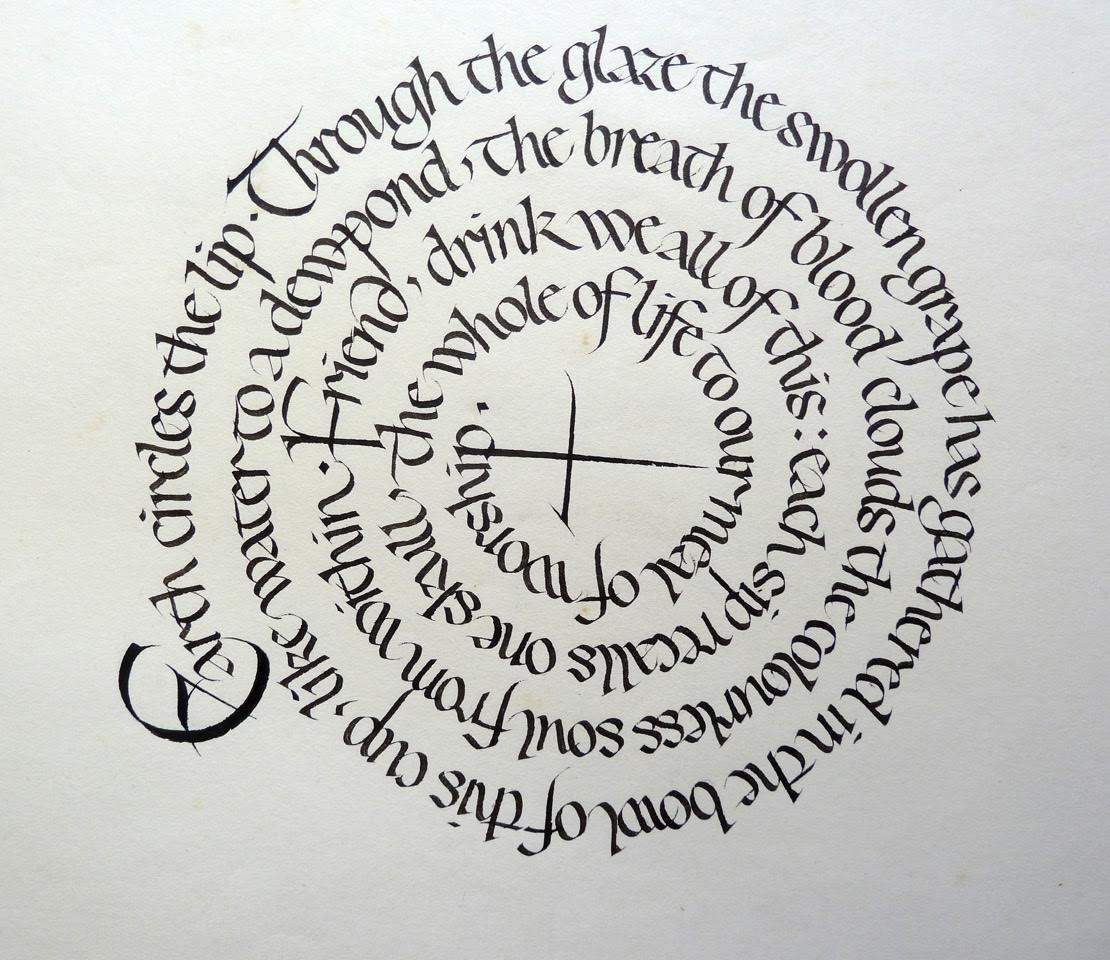 Earth circles the lip. Through the glaze the swollen grape has gathered in the bowl of this cup, like water to a dewpond, the breath of blood clouds the colourless soul from within. Friend, drink we all of this: each sip recalls one skull, the whole of life to our meal of worship.